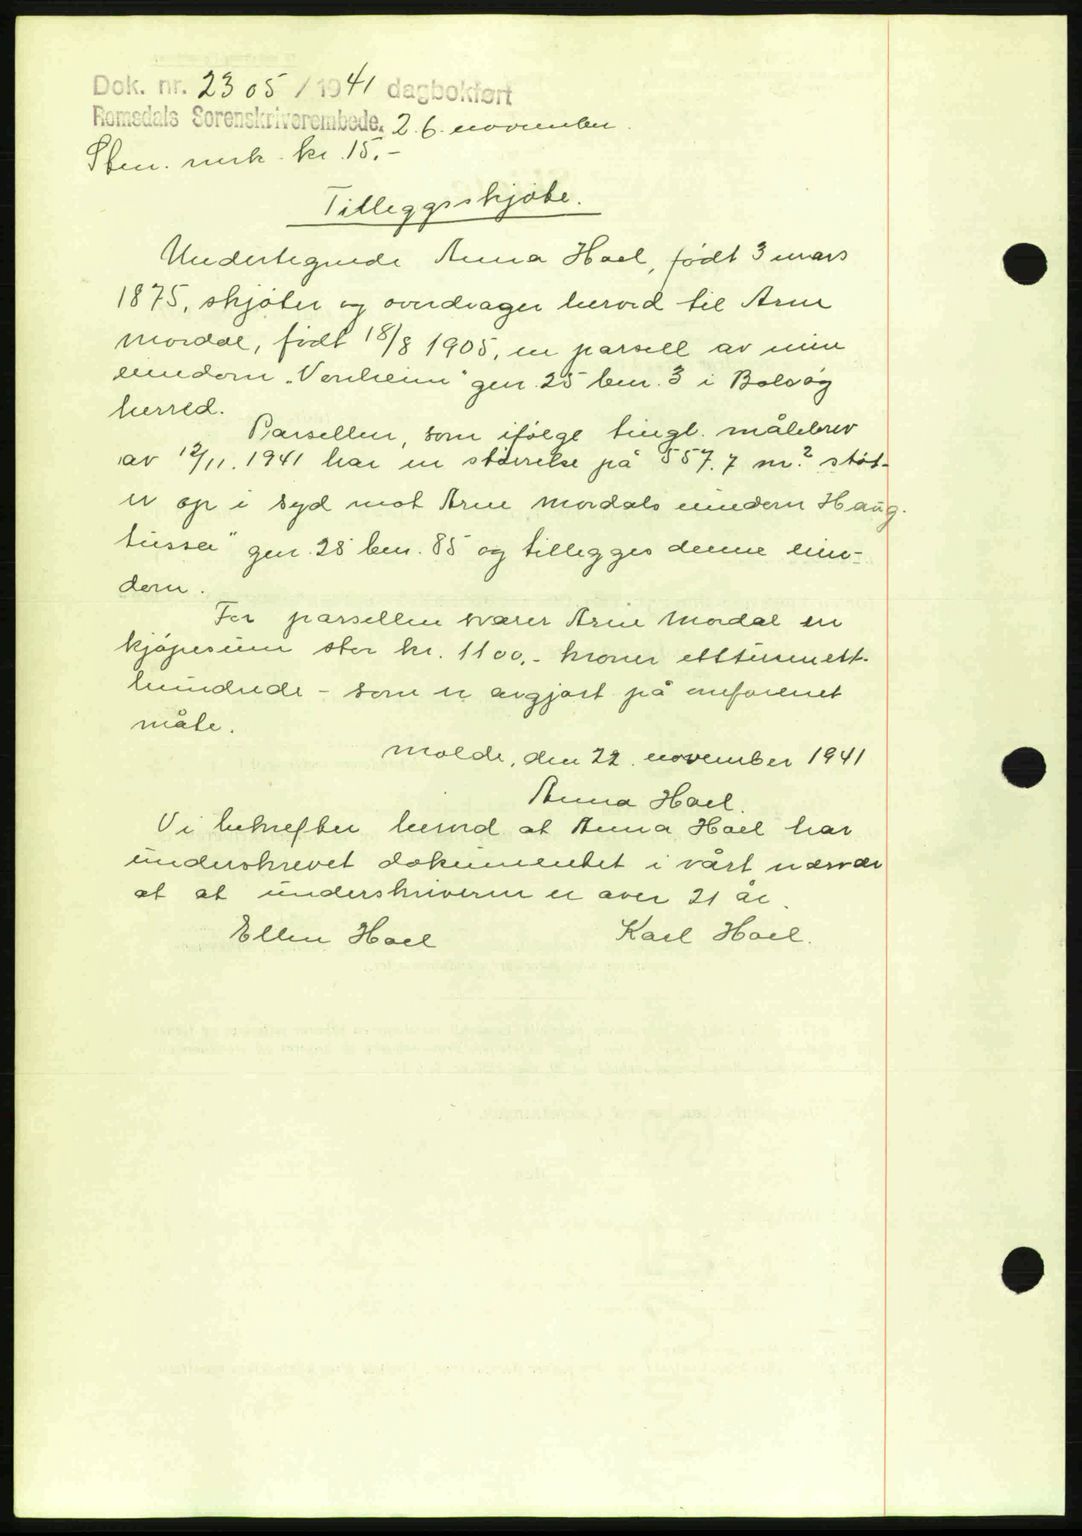 Dok. nr. 2305 / 1941 dagbokført
Romsdals Sorenskriverembede, 26. november.
Stem. merk. kr. 15.-
Tilleggsskjøte.
Undertegnede Anna Hoel, født 3 mars
1875, skjøter og overdrager herved til Arne
Mordal, født 18/8 1905, en parsell av min
eiendom „Venheim" gnr. 25 bnr. 3 i Bolsøy
herred.
Parsellen, som ifølge tingl. målebrev
av 12/11. 1941 har en størrelse på 557.7 m.² støt-
er op i syd mot Arne Mordals eiendom Haug-
tussa" gnr. 25 bnr. 85 og tillegges denne eien-
dom.
For parsellen svarer Arne Mordal en
kjøpesum stor kr. 1100.- kroner ettusenett-
hundrede - som er avgjort på omforenet
måte.
Molde, den 22. november 1941
Anna Hoel.
Vi bekrefter herved at Anna Hoel har
underskrevet dokumentet i vårt nærvær
at at underskriveren er over 21 år.
Ellen Hoel Karl Hoel.